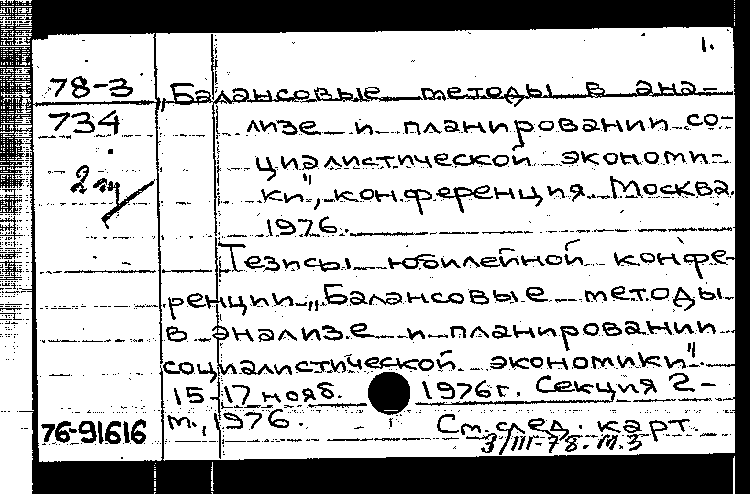 1.
78-3 „Балансовые методы в ана-
734 лизе и планировании со-
циалистической экономи-
2
ки", конференция. Москва.
1976.
Тезисы юбилейной конфе-
ренции „Балансовые методы
в анализе и планировании
социалистической экономики".
15-17 нояб. 1976г. Секция 2-
76-91616 м., 1976. См. след. карт.
3/III-78. М.3